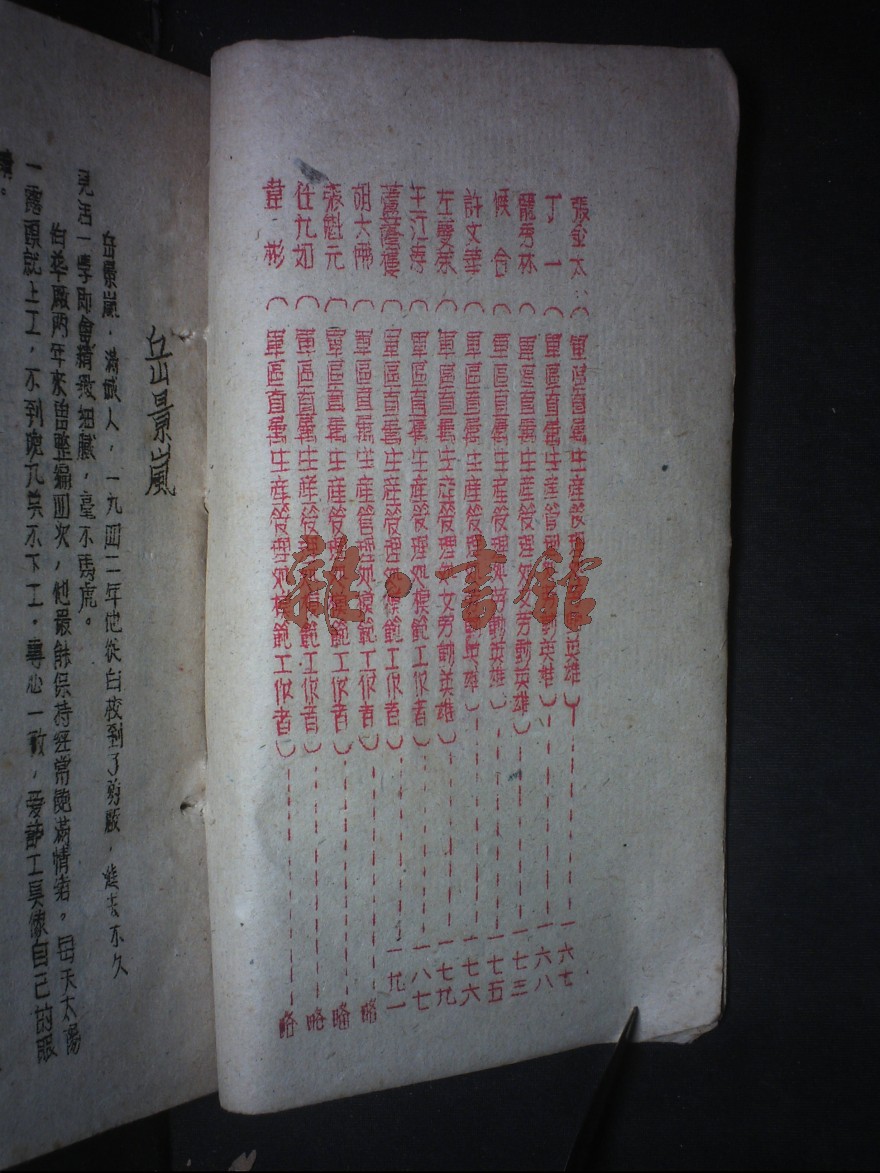 張金太（軍區直屬生產管理 英雄）一六七
丁 一（軍區直屬生產管理 動英雄）一六八
龍秀林（軍區直屬生產管理处女劳動英雄）一七三
候 合（軍區直屬生產管理处劳動英雄）一七五
許文華（軍區直屬生產管理 英雄）一七六
左雙 （軍區直屬生產管理处女劳動英雄）一七九
王江 （軍區直屬生產管理处模範工作者）一八七
蘆蔭樓（軍區直屬生產管理处模範工作者）一九一
胡大佛（軍區直屬生產管理处模範工作者）略
張魁元（軍區直屬生產管理处模範工作者）略
任九如（軍區直屬生產管理 模範工作者）略
韋 彬（軍區直屬生產管理处模範工作者）略
雜·書館
岳景嵐
岳景嵐，滿城人，一九四二年他從白校到了剪廠，進去不久
見活一學即會精緻細膩，毫不馬虎。
 華廠两年來曾整編四次，他最能保持經常飽滿情緒。每天太陽
一露頭就上工，不到晚九點不下工。專心一致，爱護工具像自己的眼
睛。